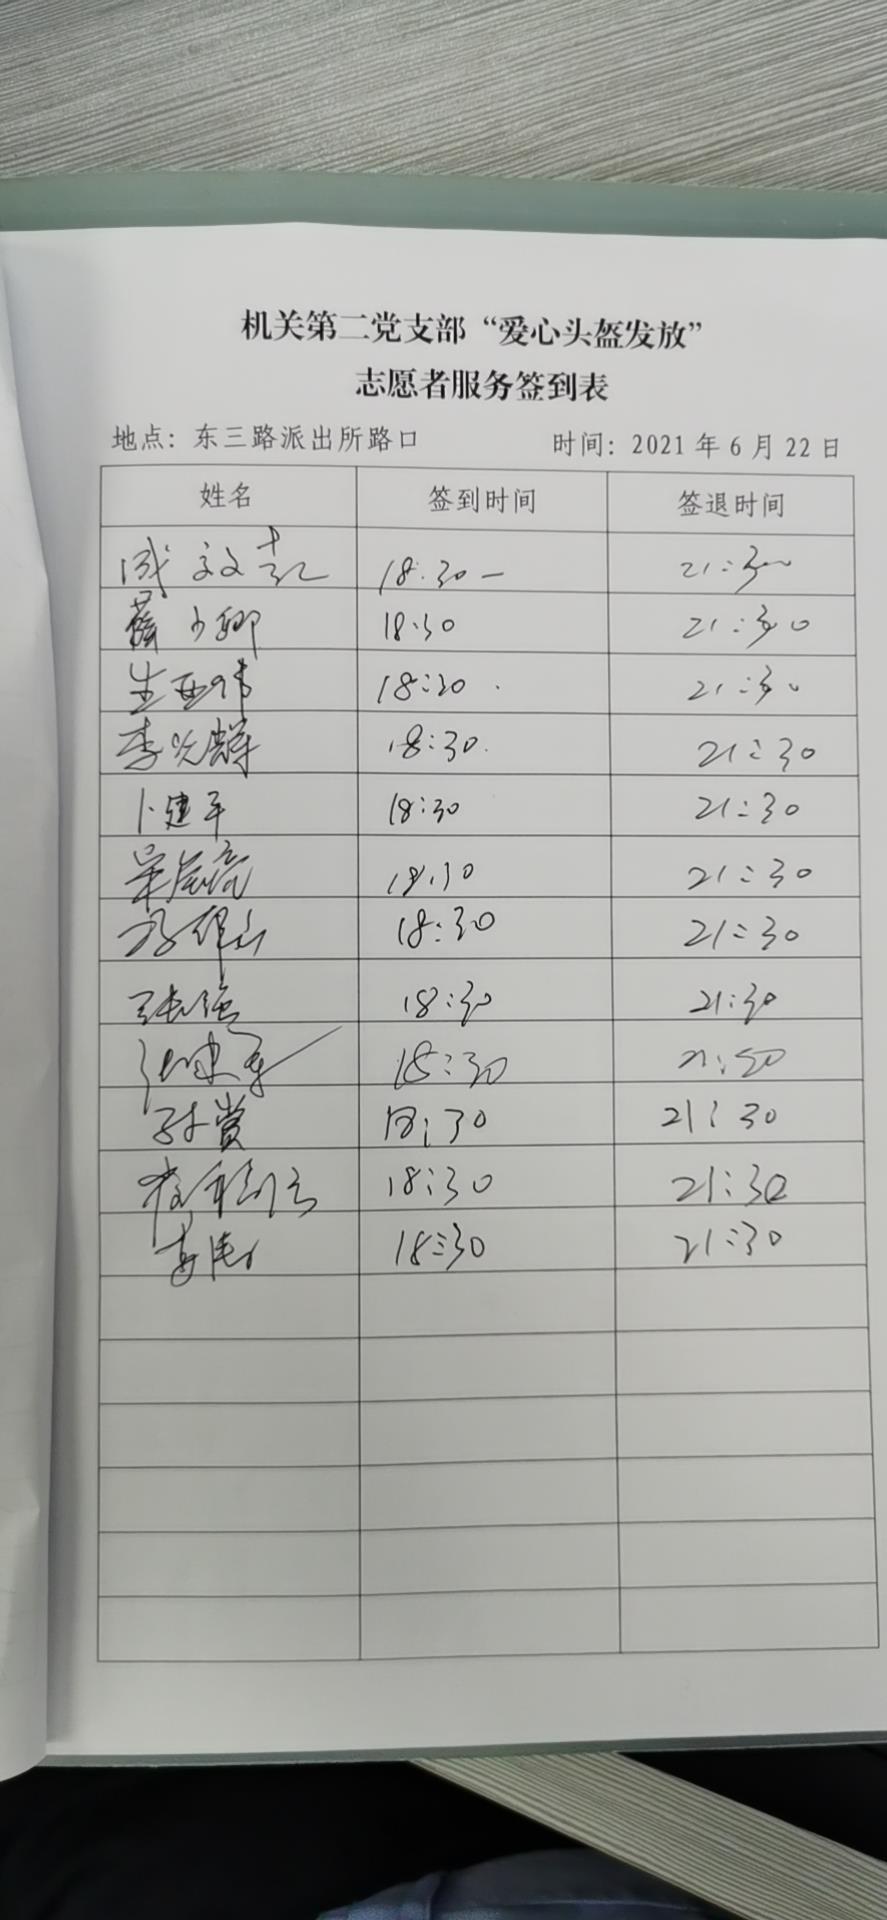 机关第二党支部“爱心头盔发放”
志愿者服务签到表
地点：东三路派出所路口 时间：2021年6月22日
姓名 签到时间 签退时间
成 18:30 21:30
薛少卿 18:30 21:30
生亚伟 18:30 21:30
李光辉 18:30 21:30
卜建平 18:30 21:30
18:30 21:30
18:30 21:30
张强 18:30 21:30
18:30 21:30
孙赏 18:30 21:30
18:30 21:30
18:30 21:30